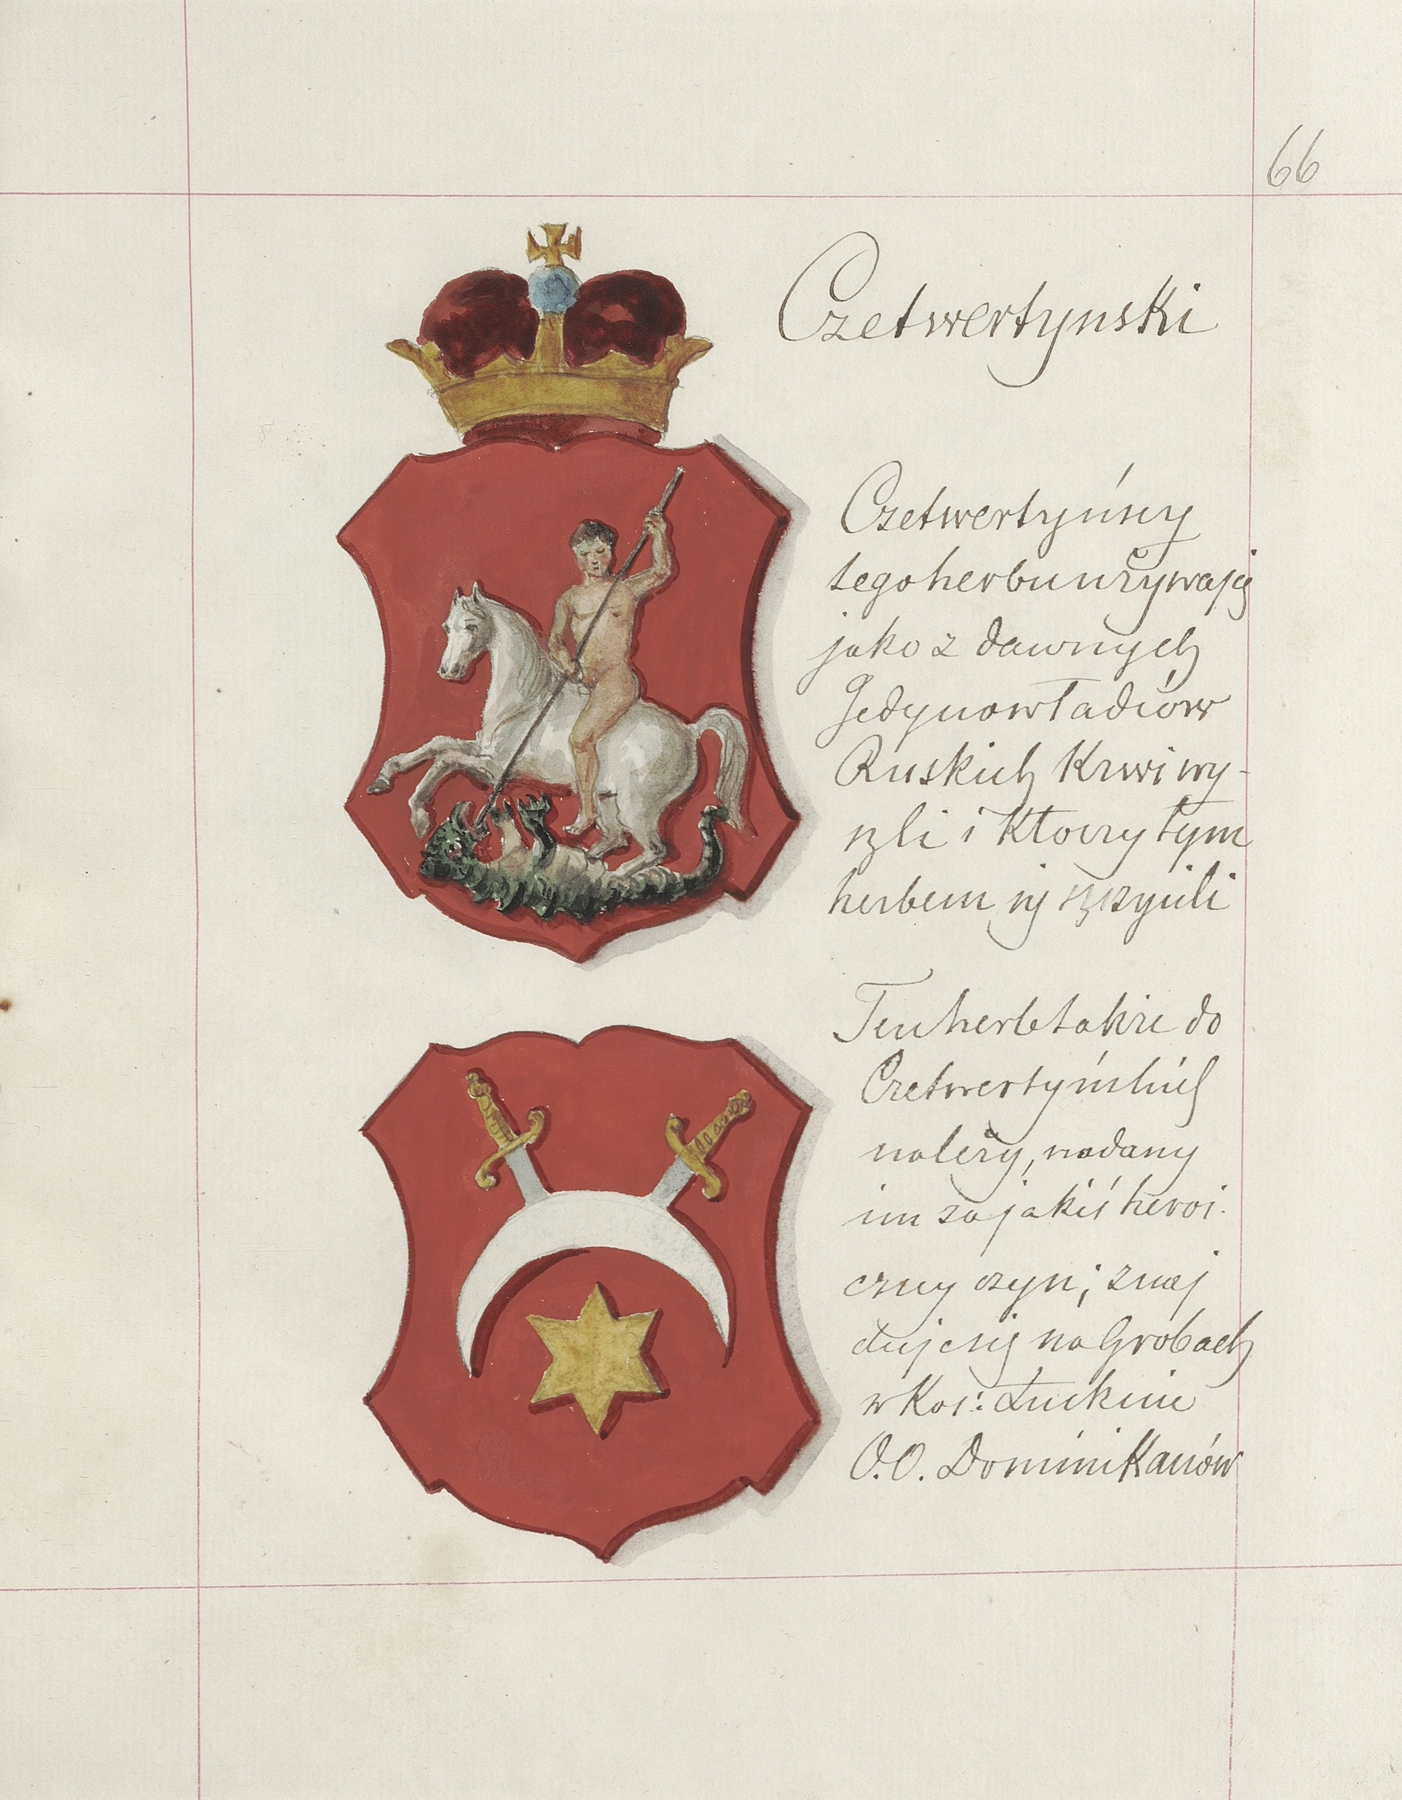 66
Czetwertynski
Czetwertyńscy
tego herbu używają
jako z dawnych
Jedynowładców
Ruskich Krwi wy-
szli i Którzy tym
herbem się szczycili
Ten herb także do
Czetwertyńskich
należy, nadany
im za jakiś heroi-
czny czyn; znaj
duje się na Grobach
w Koś: Łuckim
O.O. Dominikanów